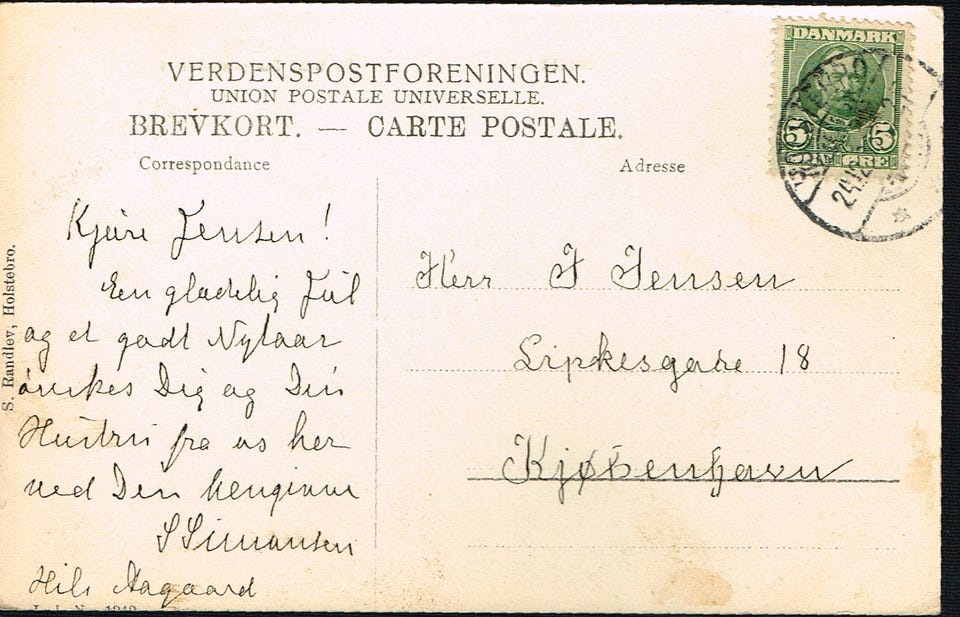 VERDENSPOSTFORENINGEN.
UNION POSTALE UNIVERSELLE.
BREVKORT. — CARTE POSTALE.
Correspondance
Adresse
DANMARK
5 5
ØRE
24.12
Kjære Jensen!
En glædelig Jul
og et godt Nytaar
ønskes Dig og Din
Hustru fra os her
ved Den hengivne
S Simonsen
Hils Aagaard
Herr J Jensen
Lipkesgade 18
Kjøbenhavn
S. Randlev, Holstebro.